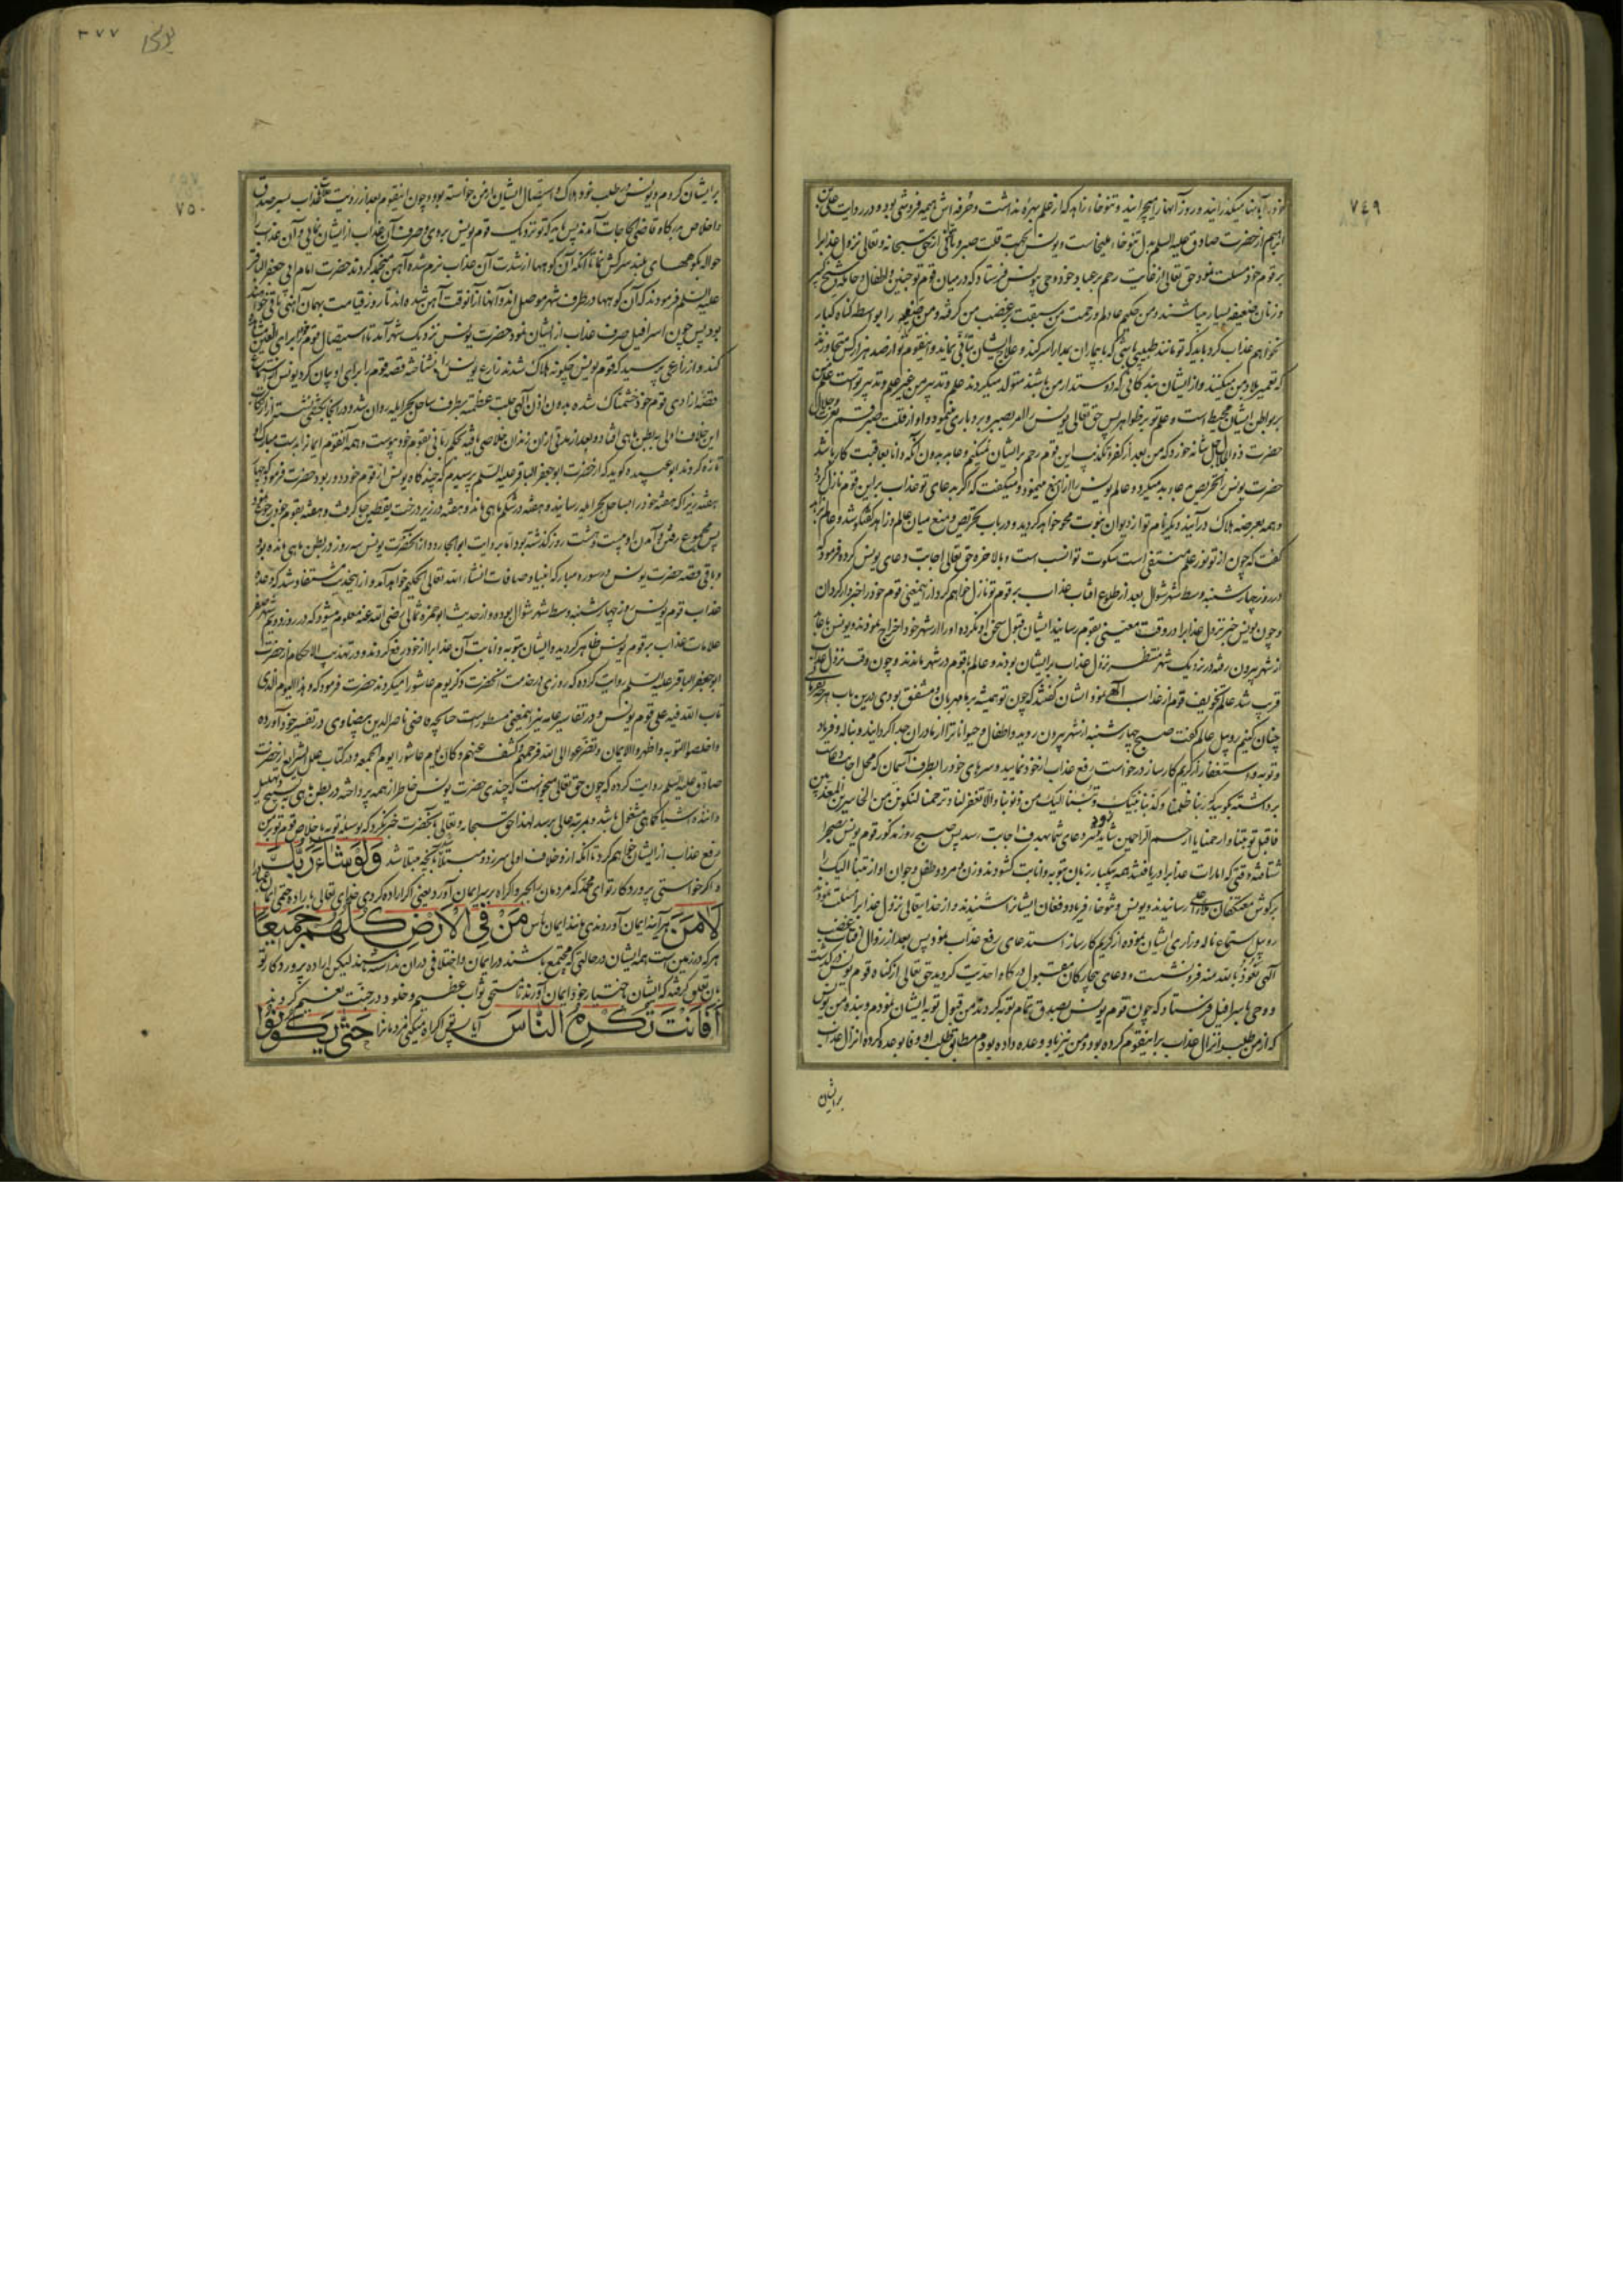 ٧٤٩
خود را بآنها میگذرانید و روز آنها را میچرانید و تنوخاء زاهد که از علم بهره نداشت و حرفه‌اش هیمه فروشی بود و در روایت علی بن
ابرهیم از حضرت صادق علیه السلم بدل تنوخاء ملیخا است و یونس بجهت قلت صبر و تأنی از حق سبحانه و تعالی نزول عذاب را
بر قوم خود مسئلت نمود حق تعالی از غایت رحم بر عباد خود وحی بیونس فرستاد که در میان قوم تو جنین و اطفال و حامله و شیخ کبیر
و زنان ضعیفه بسیار میباشند و من حکیم عادلم و رحمت من سبقت بر غضب من گرفته و من را بواسطه گناه کبار
نخواهم عذاب کرد باید که تو مانند طبیبی باشی که با بیماران مدارا سر کند و علاج ایشان بتأنی نماید و اینقوم تو از صد هزار کس متجاوزند
که تعمیر بلاد من میکنند و از ایشان بندگانی که دوستدار من باشند متولد میگردند علم و تدبیر من غیر علم و تدبیر تو است علم من
بر بواطن ایشان محیط است و علم تو بر ظواهر پس حق تعالی یونس را امر بصبر و بردباری مینمود و او از قلت صبر قسم
حضرت ذو الجلال یاد نمود که من بعد از کفر و تکذیب این قوم رحم بر ایشان نمیکنم و عابد بدون آنکه دانا بعاقبت کار باشد
حضرت یونس را تحریص بدعای بد میکرد و عالم یونس را از آن منع مینمود و میگفت که اگر بدعای تو عذاب بر این قوم نازل گردد
و همه بمعرض هلاک درآیند دیگر نام تو از دیوان نبوت محو خواهد گردید و در باب تحریص و منع میان عالم و زاهد گفتگو شد و عالم بزاهد
گفت که چون از تو نور علم منتفی است سکوت تو انسب است و بالاخره حق تعالی اجابت دعای یونس کرده فرمود که
در روز چهارشنبه وسط شهر شوال بعد از طلوع آفتاب عذاب بر قوم تو نازل خواهم کرد از اینمعنی قوم خود را خبردار گردان
و چون یونس خبر نزول عذاب را در وقت معین بقوم رسانید ایشان قبول سخن او نکرده او را از شهر خود اخراج نمودند و یونس با عابد
از شهر بیرون رفته در نزدیک شهر منتظر نزول عذاب بر ایشان بودند و عالم با قوم در شهر ماندند و چون وقت نزول عذاب
قریب شد عالم تخویف قوم از عذاب الهی نمود ایشان گفتند که چون تو همیشه بر ما مهربان و مشفق بودی در این باب هر چه بفرمائی
چنان کنیم روبیل عالم گفت صبح چهارشنبه از شهر بیرون روید و اطفال و حیوانات را از مادران جدا گردانید و بناله و فریاد
و توبه و استغفار از کریم کارساز درخواست رفع عذاب از خود نمایید و سرهای خود را بطرف آسمان که محل اجابت دعاست
برداشته بگویید که ربنا ظلمنا و کذبنا نبیک و تبنا الیک من ذنوبنا و الا تغفر لنا و ترحمنا لنکونن من الخاسرین المعذبین
فاقبل توبتنا و ارحمنا یا ارحم الراحمین شاید که تیر دعای شما بهدف اجابت رسد پس صبح روز مذکور قوم یونس بصحرا
شتافته وقتی که امارات عذاب را دریافتند همه بیکبار زبان بتوبه و انابت گشودند و زن و مرد و طفل و جوان آواز تبنا الیک را
بگوش معتکفان ملأ اعلی رسانیدند و یونس و تنوخاء فریاد و فغان ایشان را شنیدند و از خدایتعالی نزول عذاب را مسئلت نمودند
روبیل استماع ناله و زاری ایشان نموده از کریم کارساز استدعای رفع عذاب نمود پس بعد از زوال آفتاب غضب
الهی نعوذ بالله منه فرو نشست و دعای بیچارگان مقبول درگاه احدیت گردید حق تعالی از گناه قوم یونس درگذشت
و وحی باسرافیل فرستاد که چون قوم یونس بصدق تمام توبه کردند من قبول توبه ایشان نمودم و بنده من یونس
که از من طلب انزال عذاب بر اینقوم کرده بود و من نیز باو وعده داده بودم مطابق طلب او وفا بوعده کرده انزال عذاب
بر ایشان
٣٧٧
یونس
٧٥٠
بر ایشان کردم و یونس در طلب خود هلاک و استیصال ایشان از من خواسته بود و چون اینقوم بعد از رؤیت عذاب بسر صدق
و اخلاص بدرگاه قاضی الحاجات آمدند پس باید که تو نزدیک قوم یونس بروی و صرف آن عذاب از ایشان نمایی و آن عذاب را
حواله بکوههای بلند سرکش نمائی تا آنکه آن کوهها از شدت آن عذاب نرم شده آهن منجمد گردند حضرت امام ابی جعفر الباقر
علیه السلم فرمودند که آن کوهها در طرف شهر موصل اند و آنها از آنوقت آهن شده‌اند تا روز قیامت بهمان آهنی باقی خواهند
بود پس چون اسرافیل صرف عذاب از ایشان نمود حضرت یونس نزدیک شهر آمد تا استیصال قوم خود را برأی العین مشاهده
کند و از زارعی پرسید که قوم یونس چگونه هلاک شدند زارع یونس را نشناخته قصه قوم را برای او بیان کرد یونس از استماع
قصه آزادی قوم خود خشمناک شده بدون اذن الهی جلت عظمته بطرف ساحل بحر ایله روان شد و در آنجا بکشتی نشسته از ارتکاب
این خلاف اولی به بطن ماهی افتاد و بعد از مدتی از آن زندان خلاصی یافته بحکم ربانی بقوم خود پیوست و همه آنقوم ایمان را بدست مبارک او
تازه کردند ابو عبیده گوید که از حضرت ابو جعفر الباقر علیه السلم پرسیدم که چند گاه یونس از قوم خود دور بود حضرت فرمود چهار
هفته زیرا که هفته خود را بساحل بحر ایله رسانید و هفته در شکم ماهی ماند و هفته در زیر درخت یقطین جا گرفت و هفته بقوم خود رجوع نمود
پس مجموع رفتن و آمدن او بیست و هشت روز گذشته بود اما بروایت ابو الجارود از آنحضرت یونس سه روز در بطن ماهی مانده بود
و باقی قصه حضرت یونس در سوره مبارکه انبیا و صافات انشاء الله تعالی الحکیم خواهد آمد و از اینحدیث مستفاد شد که وعده
عذاب قوم یونس روز چهارشنبه وسط شهر شوال بوده و از حدیث ابو حمزه ثمالی رضی الله عنه معلوم میشود که در روز دویم شهر صفر
علامات عذاب بر قوم یونس ظاهر گردید و ایشان بتوبه و انابت آن عذاب را از خود رفع کردند و در تهذیب الاحکام از حضرت
ابو جعفر الباقر علیه السلم روایت کرده که روزی در خدمت آنحضرت ذکر یوم عاشورا میکردند حضرت فرمود که و هذا الیوم الذی
تاب الله فیه علی قوم یونس و در تفاسیر عامه نیز اینمعنی مسطور است چنانچه قاضی ناصر الدین بیضاوی در تفسیر خود آورده
و اخلصوا التوبه و اظهروا الایمان و تضرعوا الی الله فرحمهم و کشف عنهم و کان یوم عاشورا یوم الجمعه و در کتاب علل الشرایع از حضرت
صادق علیه السلم روایت کرده که چون حق تعالی میخواست که چندی حضرت یونس خاطر از همه پرداخته در بطن ماهی بتسبیح و تهلیل
دانندۀ اشیا کماهی مشغول باشد و بمرتبه عالی برسد لهذا حق سبحانه و تعالی بآنحضرت خبر نکرد که بوسیله توبه با خلاص قوم تو من
رفع عذاب از ایشان خواهم کرد تا آنکه از او خلاف اولی سر زد و مبتلا بآنچه مبتلا شد وَلَوْ شَاءَ رَبُّكَ
و اگر خواستی پروردگار تو ای محمد که مردمان بالجبر و اکراه بر سر ایمان آورد یعنی اگر اراده کردی خدای تعالی باراده حتمی ایمان
لَآمَنَ هر آینه ایمان آوردندی مانند ایمان ناس مَنْ فِي الْأَرْضِ كُلُّهُمْ جَمِيعًا
هر که در زمین است همه ایشان در حالتی که مجتمع باشند در ایمان و اختلافی در آن نداشته باشند لیکن اراده پروردگار تو
بآن تعلق گرفته که ایشان باختیار خود ایمان آورند تا مستحق ثواب عظیم و خلود در جنت نعیم گردند
أَفَأَنْتَ تُكْرِهُ النَّاسَ آیا پس تو اکراه میکنی مردمان را حَتَّىٰ يَكُونُوا